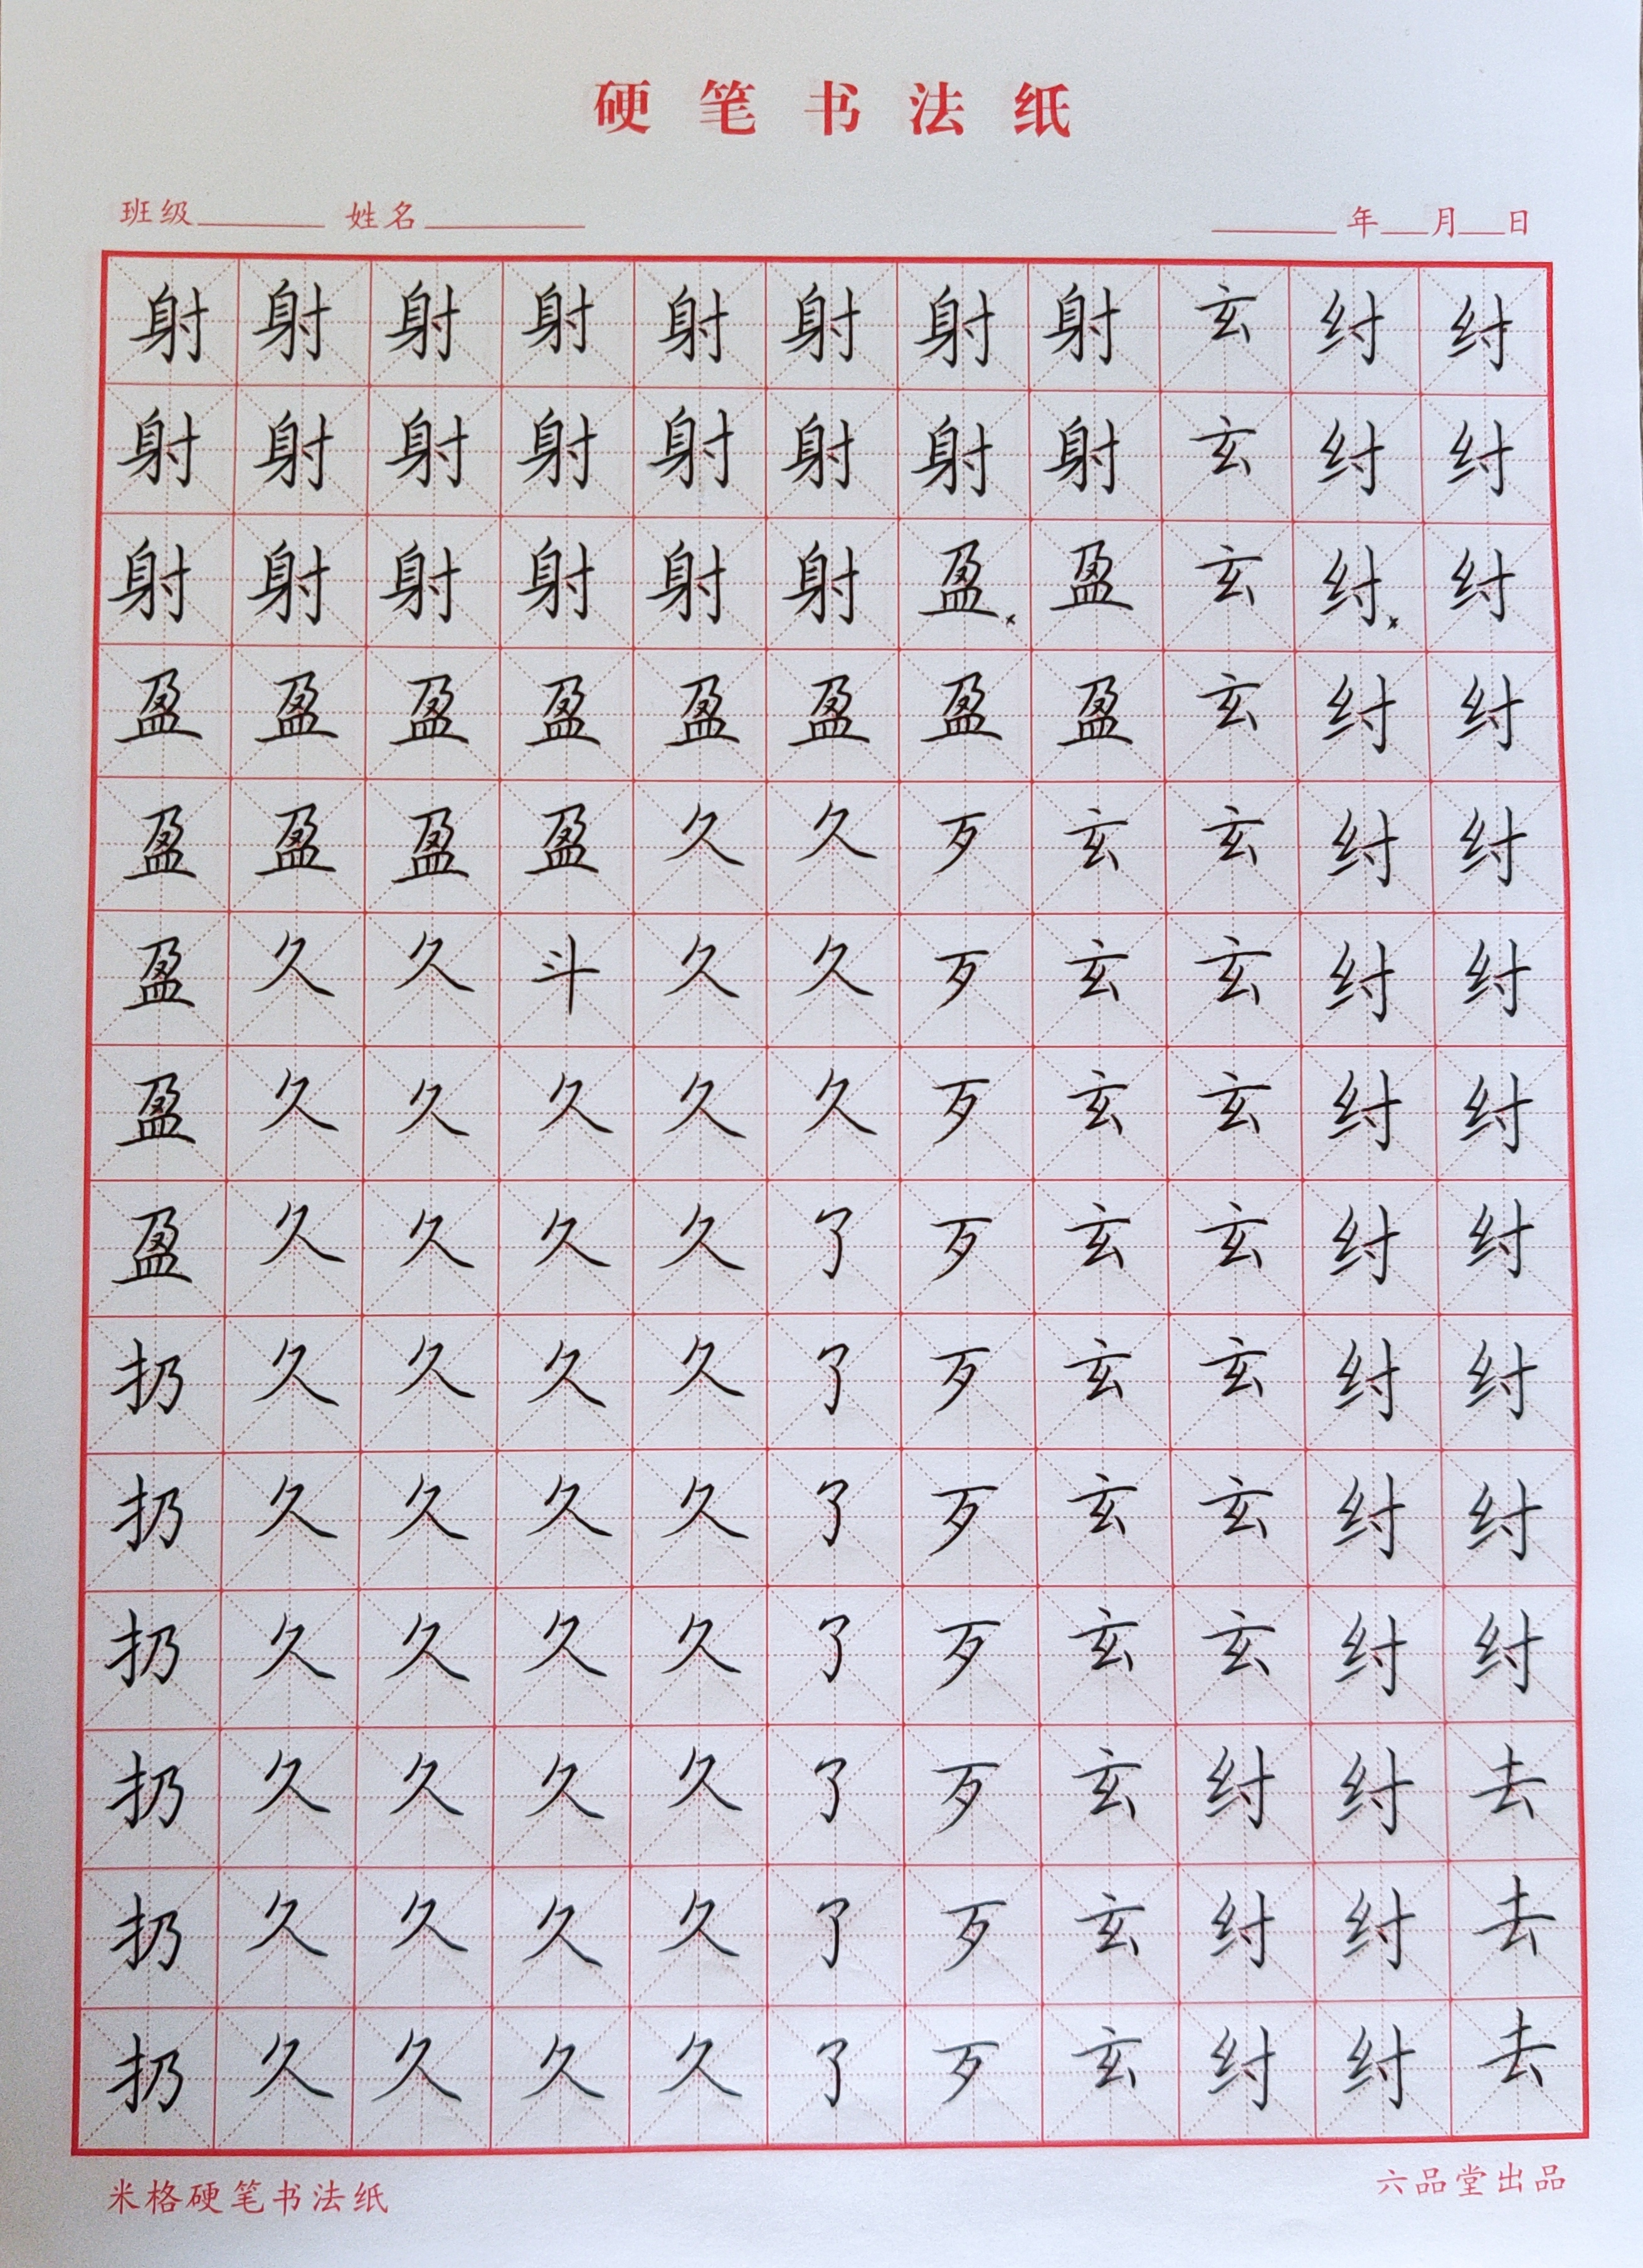 硬笔书法纸
班级 姓名 年 月 日
射射射射射射射射玄纣纣
射射射射射射射射玄纣纣
射射射射射射盈盈玄纣纣
盈盈盈盈盈盈盈盈玄纣纣
盈盈盈盈久久歹玄玄纣纣
盈久久斗久久歹玄玄纣纣
盈久久久久久歹玄玄纣纣
盈久久久久了歹玄玄纣纣
扔久久久久了歹玄玄纣纣
扔久久久久了歹玄玄纣纣
扔久久久久了歹玄玄纣纣
扔久久久久了歹玄纣纣去
扔久久久久了歹玄纣纣去
扔久久久久了歹玄纣纣去
米格硬笔书法纸 六品堂出品